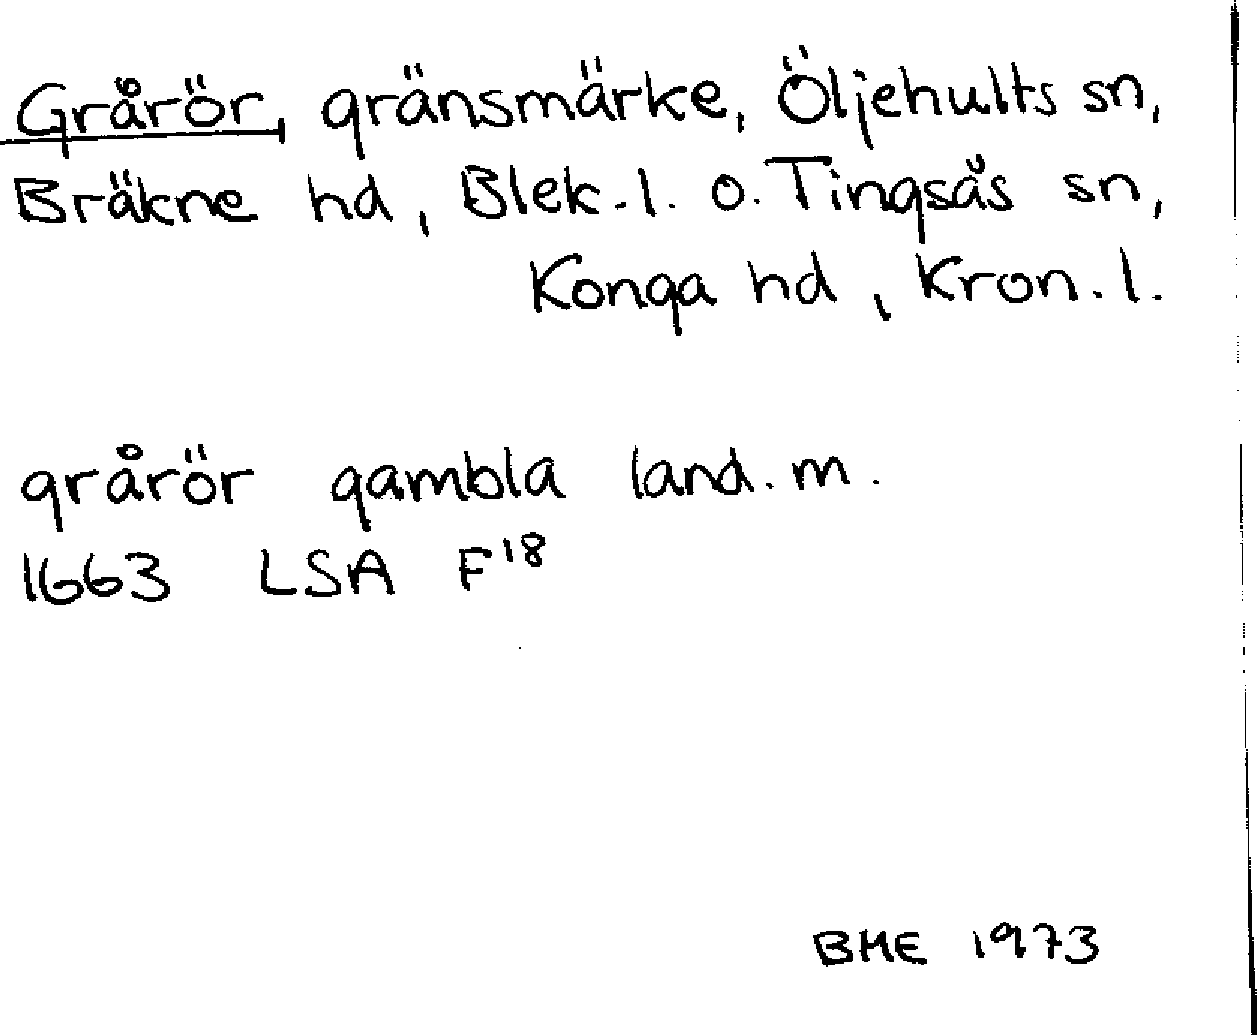 Grårör, gränsmärke, Öljehults sn,
Bräkne hd, Blek. l. o. Tingsås sn,
Konga hd, Kron. l.
grårör gambla land. m.
1663 LSA F18
BME 1973